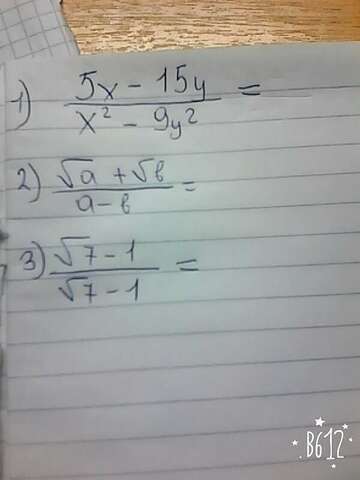 1) 5x - 15y / x² - 9y² =
2) √a + √b / a - b =
3) √7 - 1 / √7 - 1 =
B612